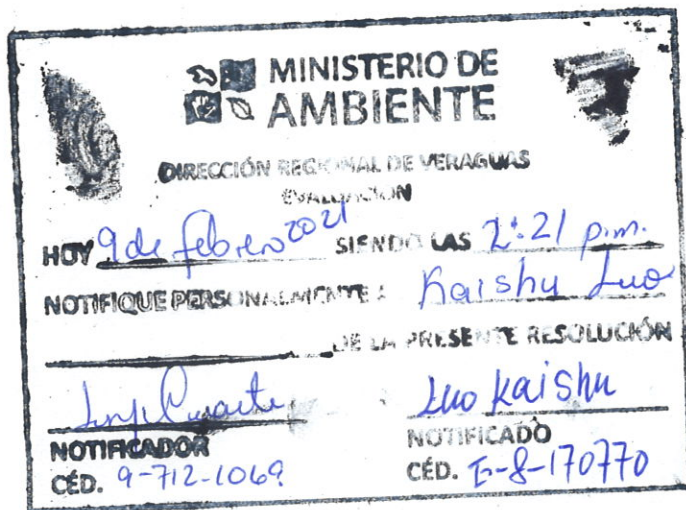 MINISTERIO DE
AMBIENTE
DIRECCIÓN REGIONAL DE VERAGUAS
EVALUACIÓN
HOY 9 de febrero 2021 SIENDO LAS 2:21 p.m.
NOTIFIQUE PERSONALMENTE A Kaishu Luo
DE LA PRESENTE RESOLUCIÓN
Luo Kaishu
NOTIFICADOR NOTIFICADO
CÉD. 9-712-1069 CÉD. E-8-170770